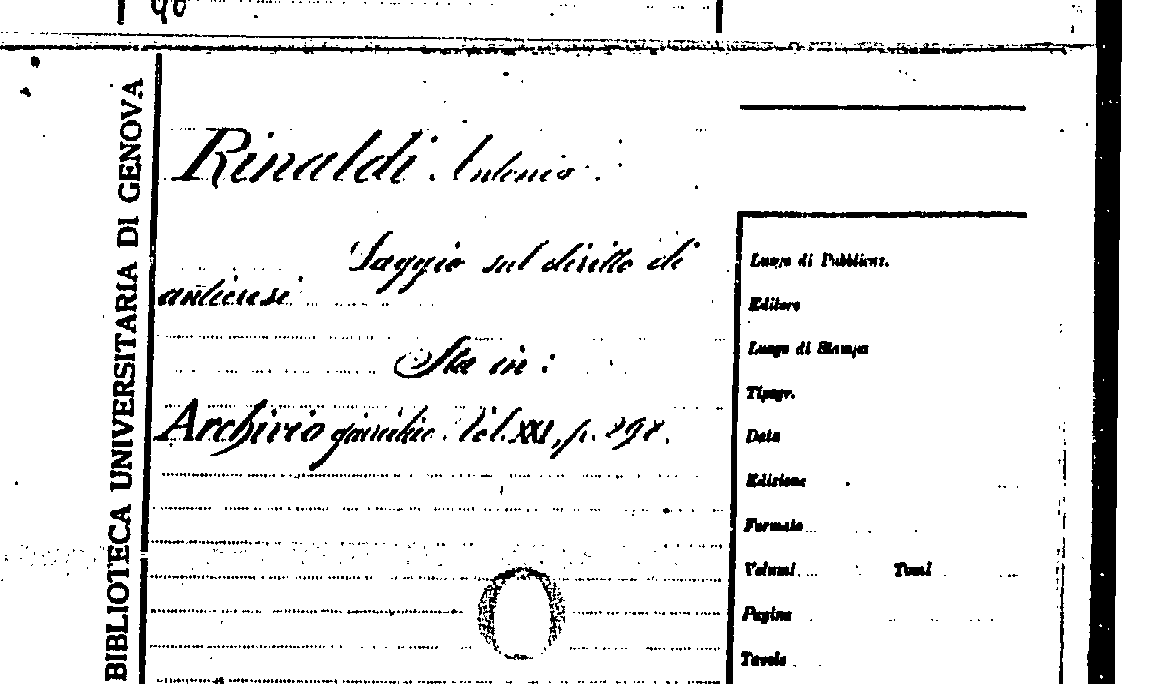 BIBLIOTECA UNIVERSITARIA DI GENOVA
Rinaldi Antonio.
Saggio sul diritto di
anticresi
Sta in:
Archivio giuridico. Vol. XXI, p. 298.
Luogo di Pubblicaz.
Editore
Luogo di Stampa
Tipogr.
Data
Edizione
Formato
Volumi Tomi
Pagine
Tavole